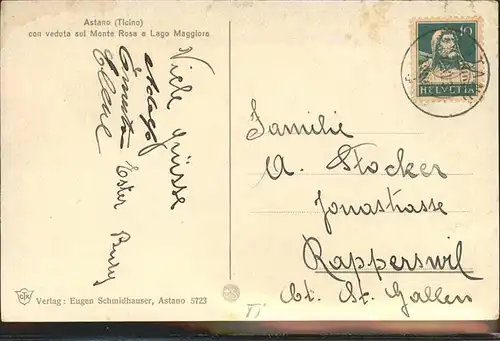 Astano (Ticino)
con veduta sul Monte Rosa e Lago Maggiore
10
HELVETIA
Viele Grüsse
Ester
Familie
A. Stocker
Jonastrasse
Rapperswil
Ct. St. Gallen
Verlag: Eugen Schmidhauser, Astano 5723